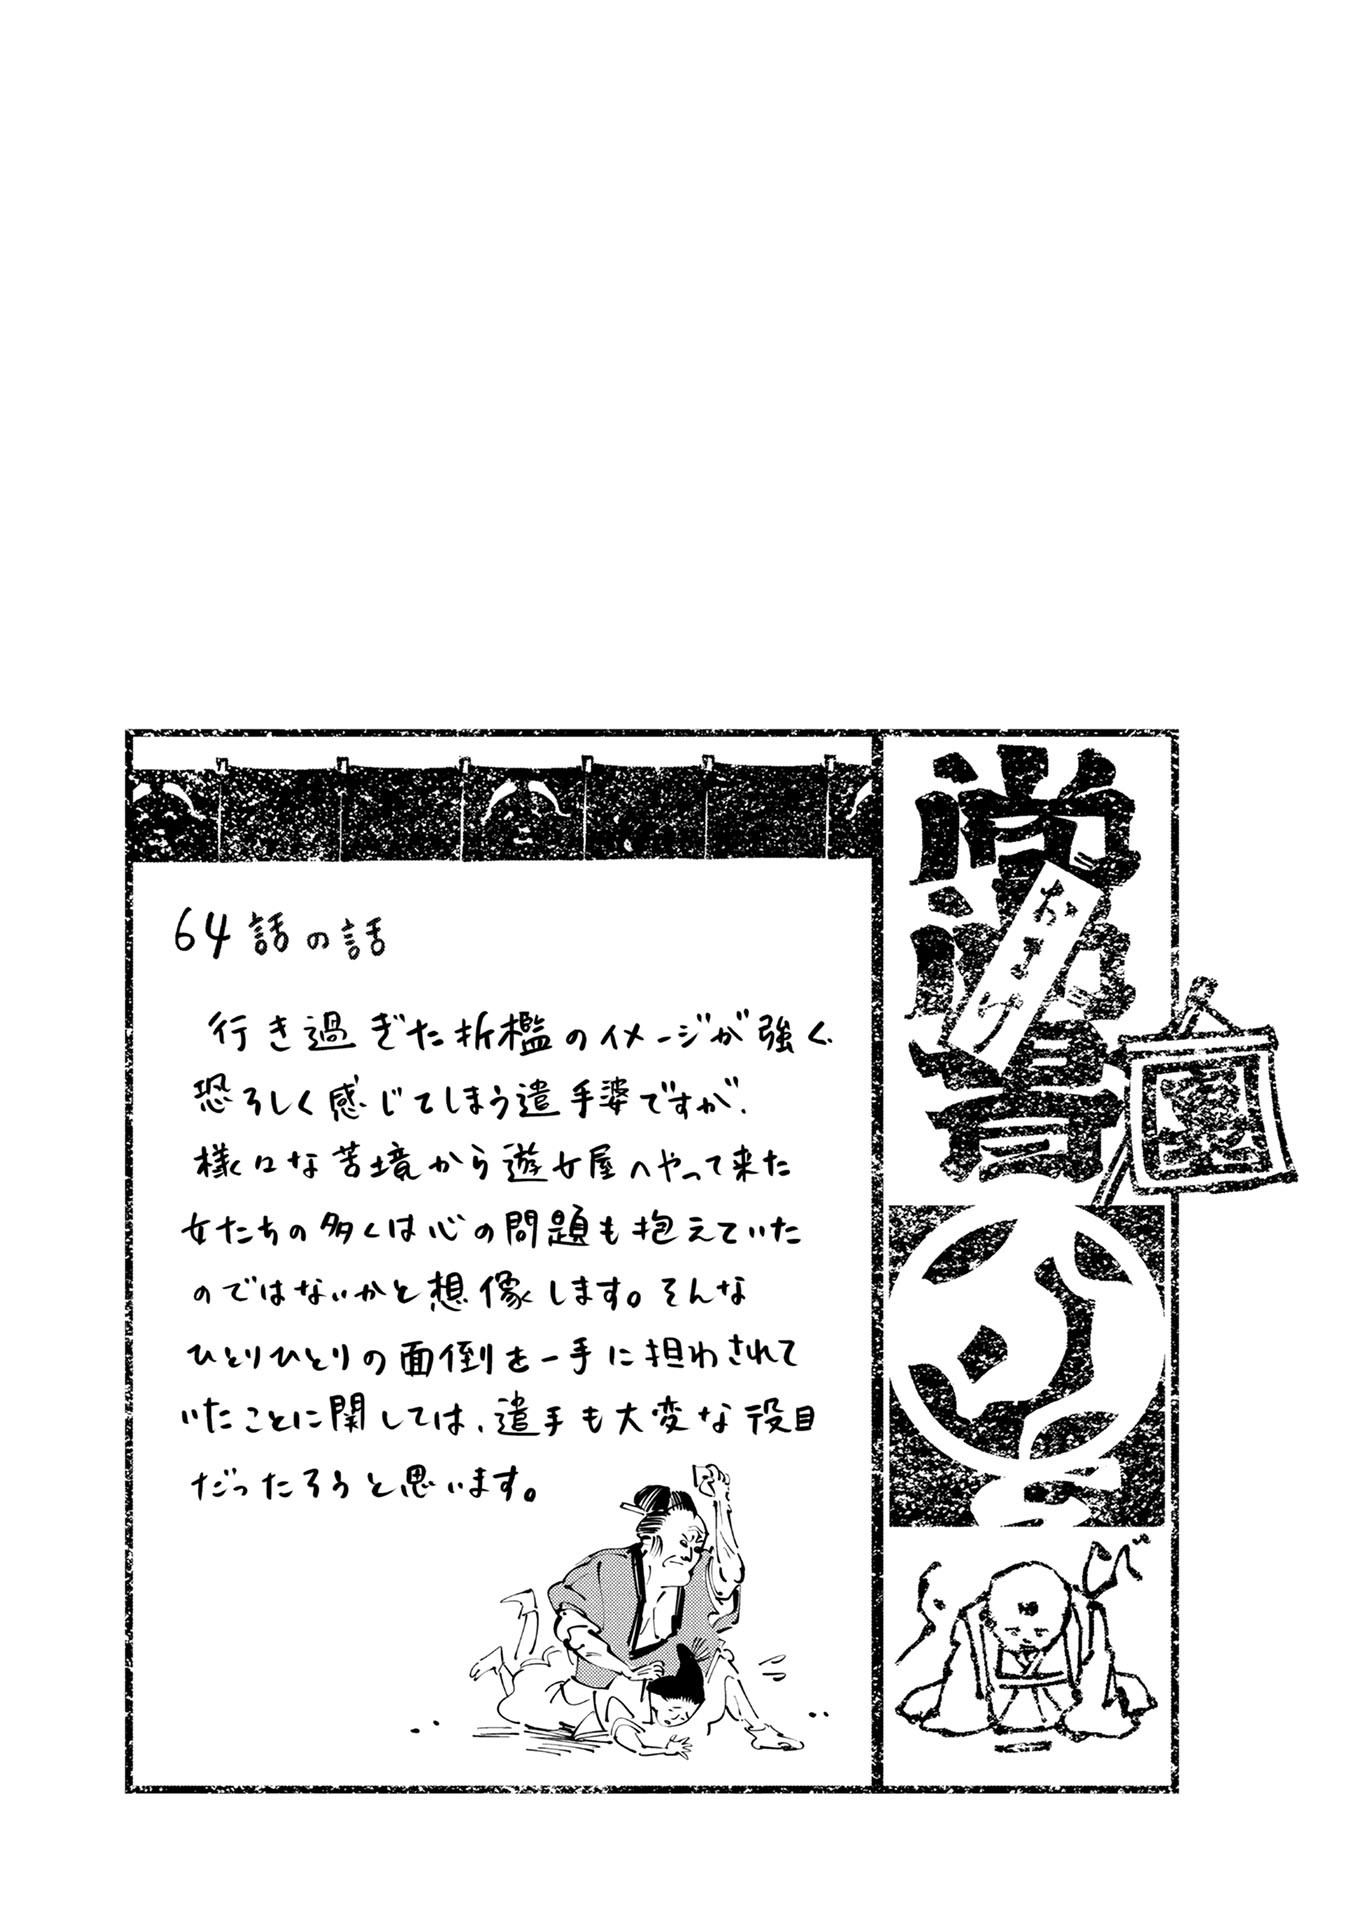 64話の話
行き過ぎた折檻のイメージが強く
恐ろしく感じてしまう遣手婆ですが、
様々な苦境から遊女屋へやって来た
女たちの多くは心の問題も抱えていた
のではないかと想像します。そんな
ひとりひとりの面倒を一手に担わされて
いたことに関しては、遣手も大変な役目
だったろうと思います。
おまけ